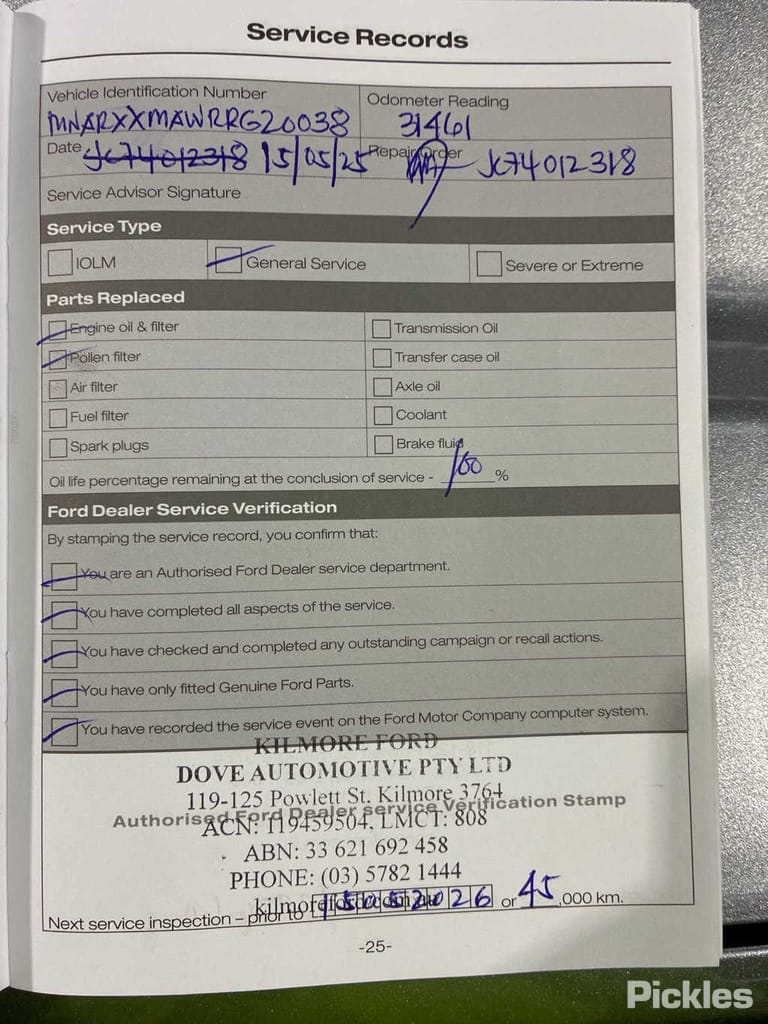 Service Records
Vehicle Identification Number
MNARXXMAWRRG20038
Odometer Reading
31461
Date JC74012318 15/05/25
Repair Order JC74012318
Service Advisor Signature
Service Type
IOLM
General Service
Severe or Extreme
Parts Replaced
Engine oil & filter
Transmission Oil
Pollen filter
Transfer case oil
Air filter
Axle oil
Fuel filter
Coolant
Spark plugs
Brake fluid
Oil life percentage remaining at the conclusion of service - 100 %
Ford Dealer Service Verification
By stamping the service record, you confirm that:
You are an Authorised Ford Dealer service department.
You have completed all aspects of the service.
You have checked and completed any outstanding campaign or recall actions.
You have only fitted Genuine Ford Parts.
You have recorded the service event on the Ford Motor Company computer system.
KILMORE FORD
DOVE AUTOMOTIVE PTY LTD
119-125 Powlett St. Kilmore 3764
Authorised Ford Dealer service Verification Stamp
ACN: 119459504, LMCT: 808
ABN: 33 621 692 458
PHONE: (03) 5782 1444
kilmoreford.com.au
Next service inspection – prior to 15052026 or 45,000 km.
-25-
Pickles